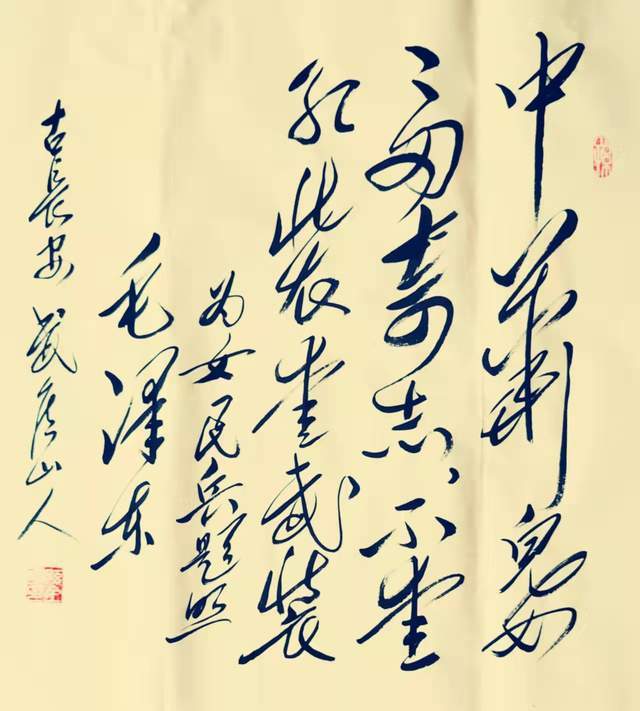 中華兒女
多奇志、不爱
红装爱武装
为女民兵题照
毛澤东
古長安 山人